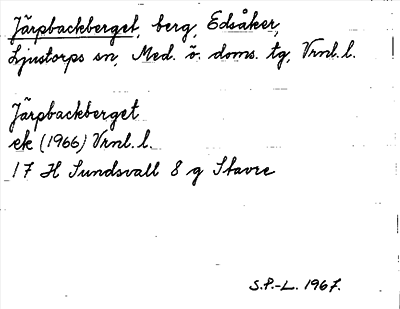 Järpbackberget, berg, Edsåker,
Ljustorps sn, Med. ö. doms. tg, Vrnl. l.
Järpbackberget
ek (1966) Vrnl. l.
17 H Sundsvall 8 g Stavre
S.P.-L. 1967.